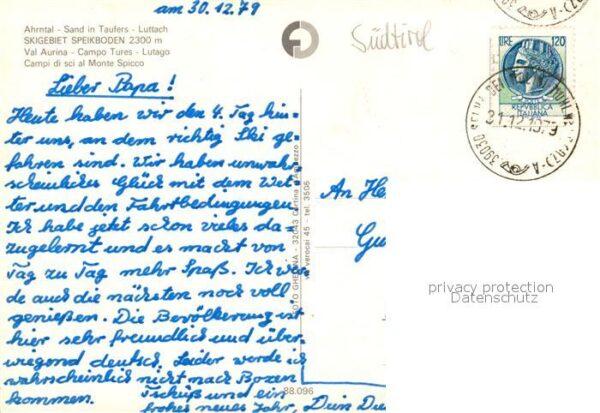 am 30.12.79
Ahrntal - Sand in Taufers - Luttach
SKIGEBIET SPEIKBODEN 2300 m
Val Aurina - Campo Tures - Lutago
Campi di sci al Monte Spicco
Südtirol
LIRE 120
REPUBBLICA
ITALIANA
31.12.1979
39030
(BZ)-A
Lieber Papa!
Heute haben wir den 4. Tag hin-
ter uns, an dem richtig Ski ge-
fahren sind. Wir haben unwahr-
scheinliches Glück mit dem Wet-
ter und den Fahrtbedingungen.
Ich habe jetzt schon vieles da-
zugelernt und es macht von
Tag zu Tag mehr Spaß. Ich wer-
de auch die nächsten noch voll
genießen. Die Bevölkerung ist
hier sehr freundlich und über-
wiegend deutsch. Leider werde ich
wahrscheinlich nicht nach Bozen
kommen. Tschüß und ein
frohes neues Jahr, Dein
FOTO GHEDINA - 32043 Cortina d'Ampezzo
via verocai 45 - tel. 3506
88.096
An He
Gu
privacy protection
Datenschutz